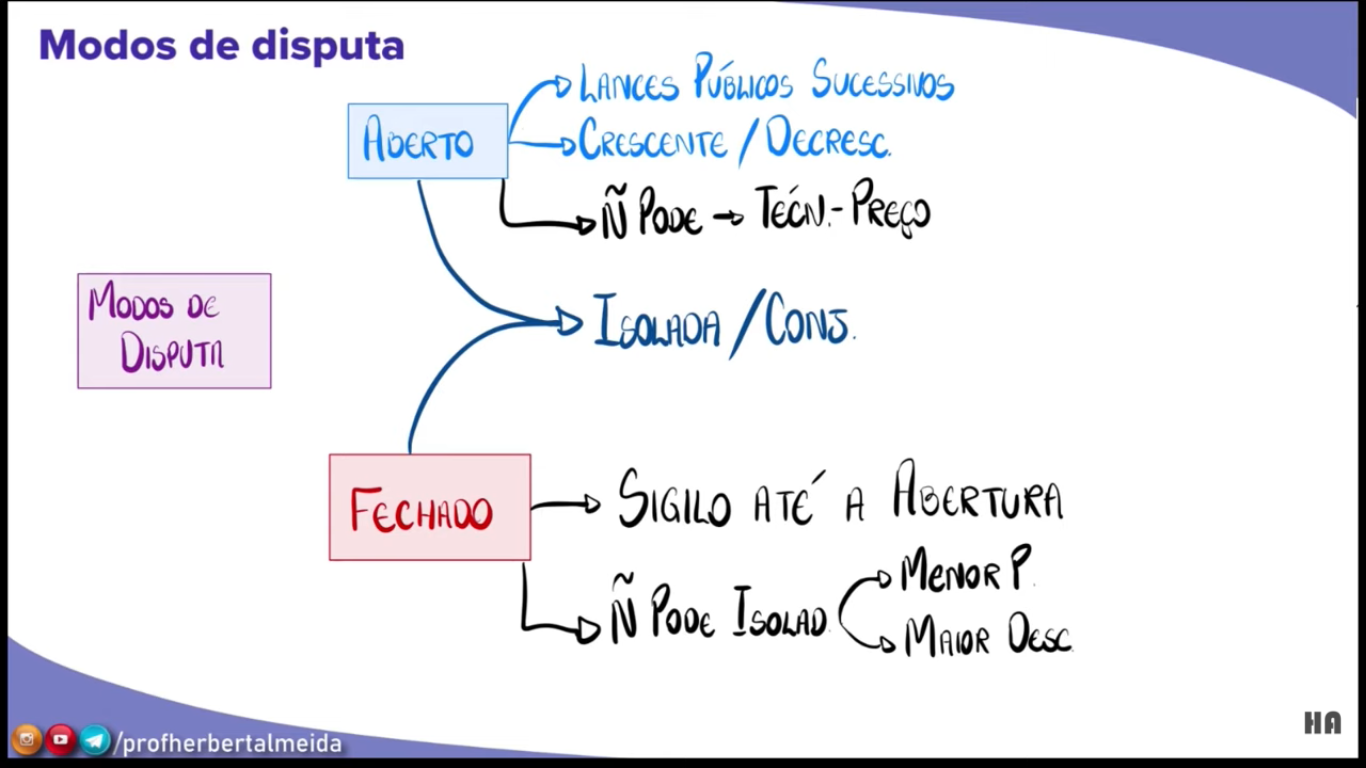 Modos de disputa
ABERTO
LANCES PÚBLICOS SUCESSIVOS
CRESCENTE / DECRESC.
Ñ PODE → TÉCN.-PREÇO
MODOS DE
DISPUTA
ISOLADA / CONJ.
FECHADO
SIGILO ATÉ A ABERTURA
Ñ PODE ISOLAD.
MENOR P.
MAIOR DESC.
/profherbertalmeida
HA